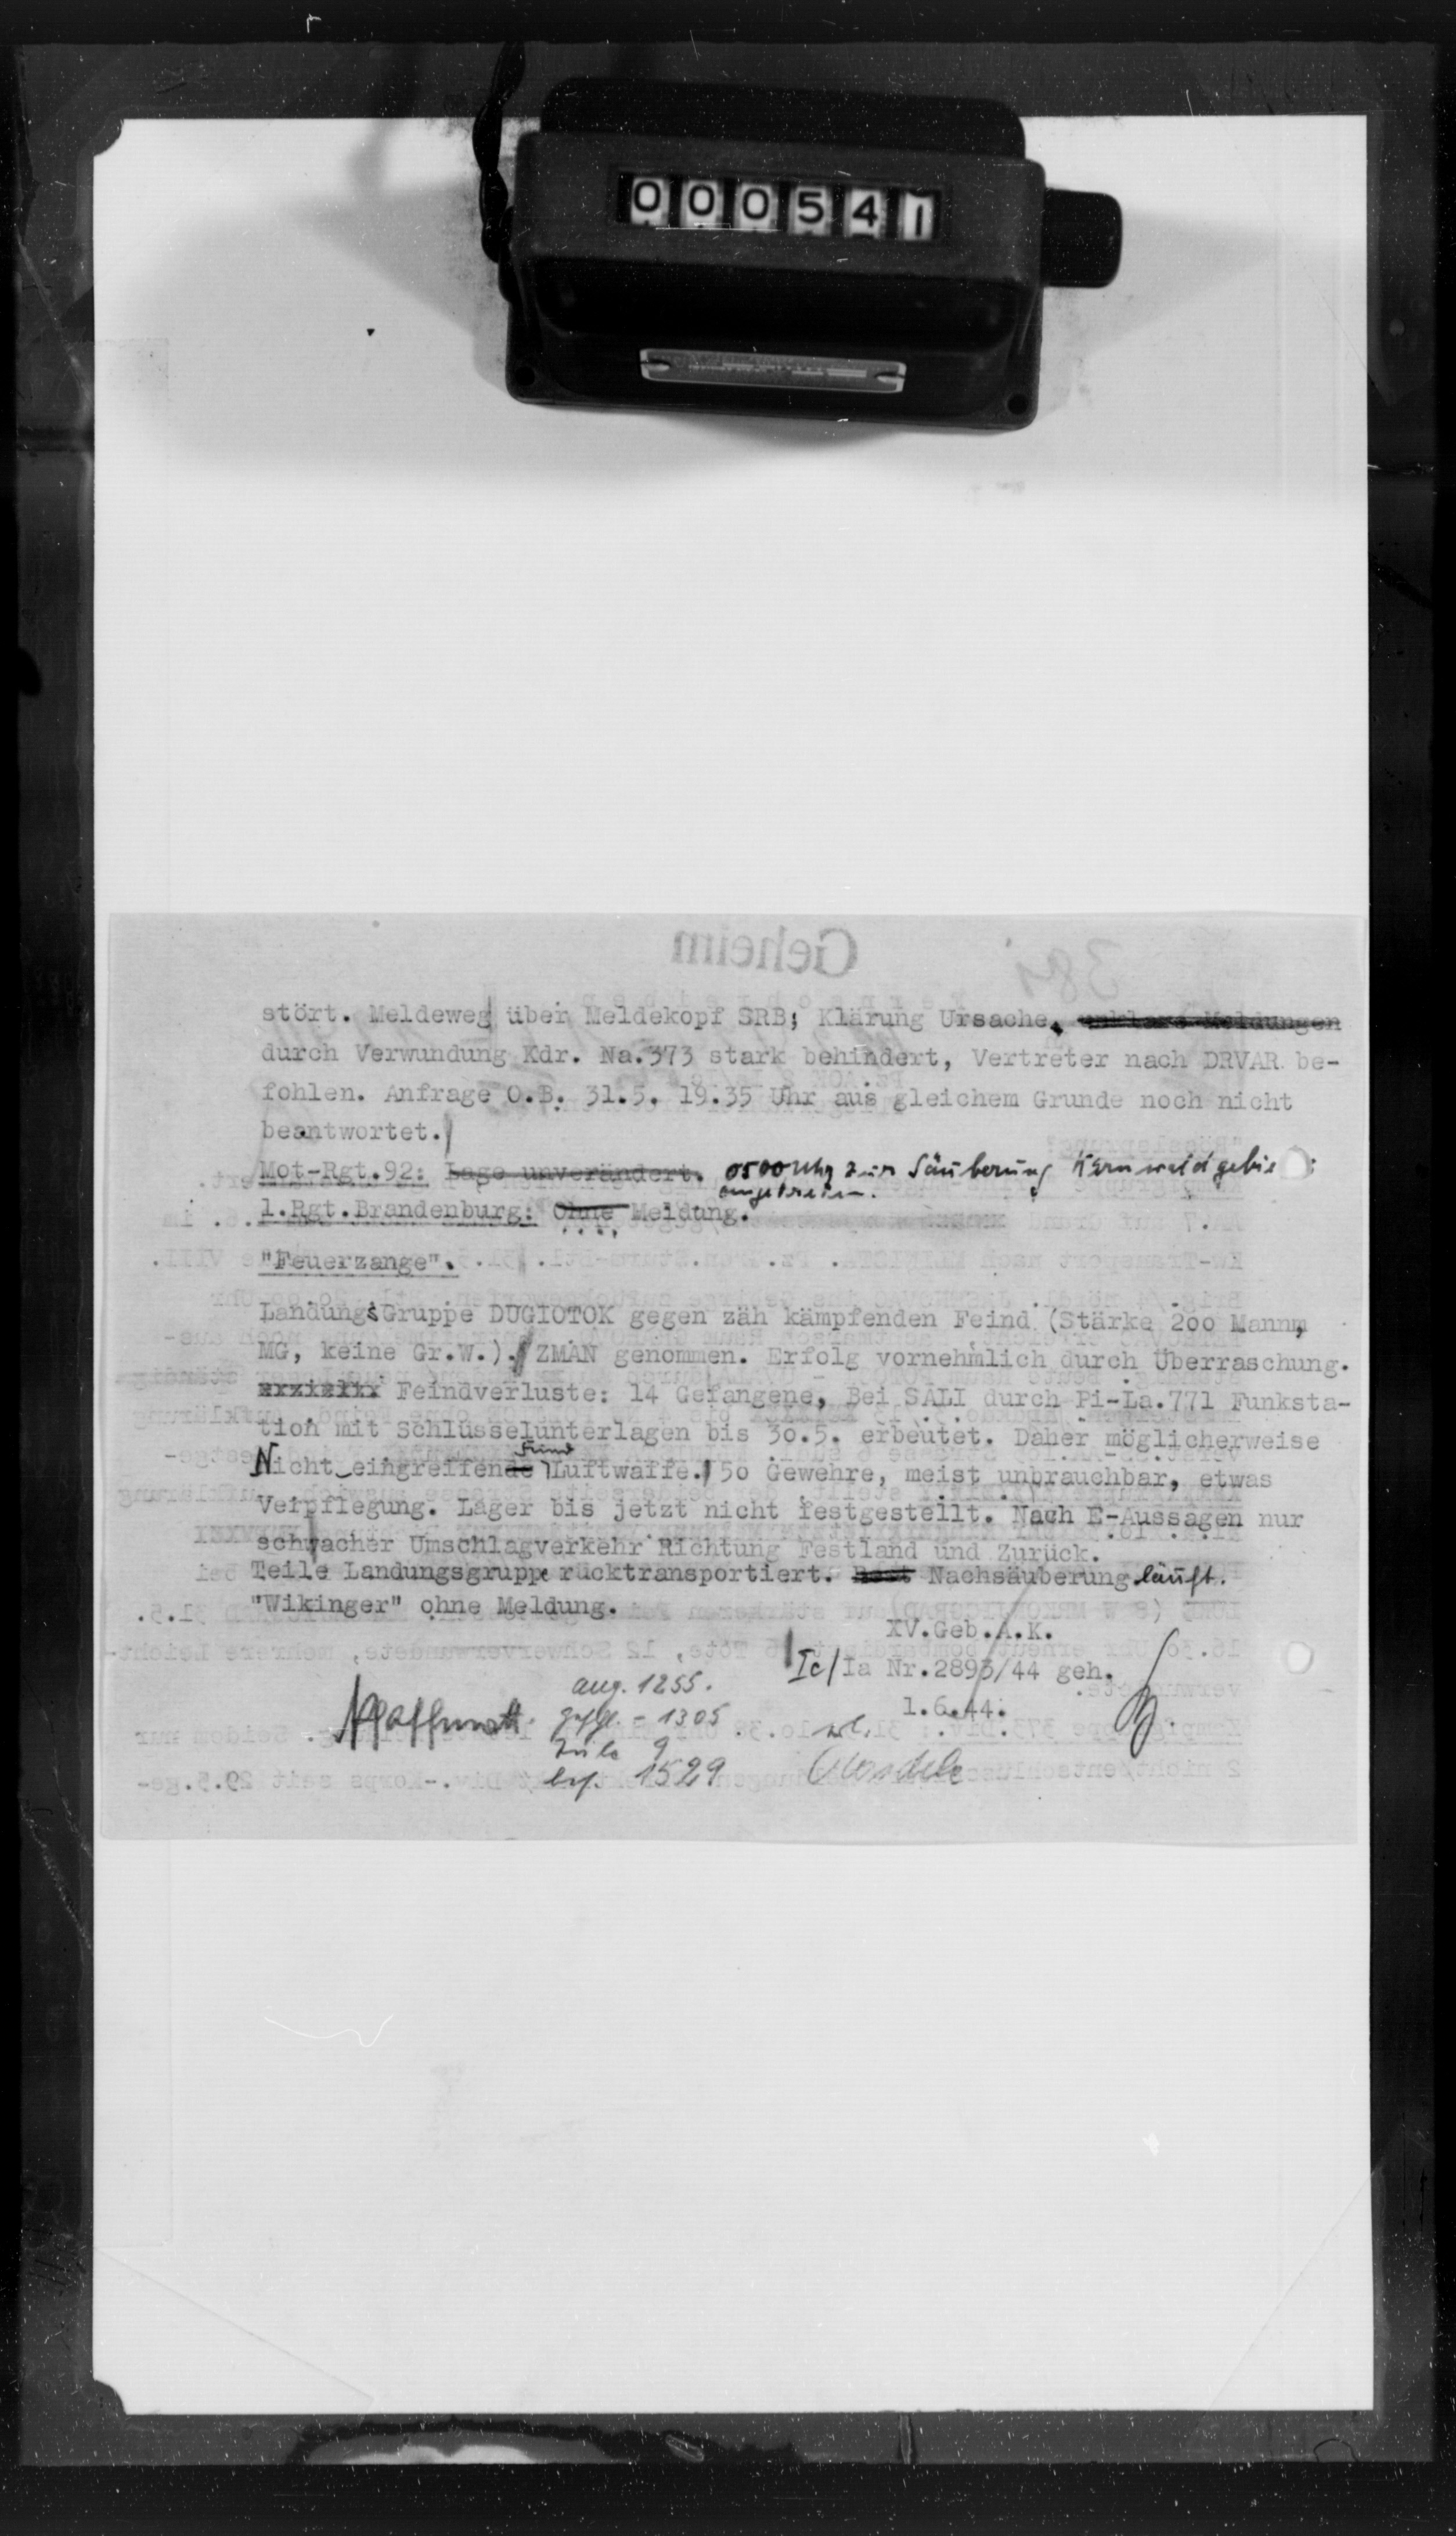 000541
Geheim
stört. Meldeweg über Meldekopf SRB; Klärung Ursache, unklare Meldungen
durch Verwundung Kdr. Na.373 stark behindert, Vertreter nach DRVAR be-
fohlen. Anfrage O.B. 31.5. 19.35 Uhr aus gleichem Grunde noch nicht
beantwortet.
Mot-Rgt.92: Lage unverändert. 0500 Uhr zur Säuberung Kernwaldgebie
angetreten.
1.Rgt.Brandenburg: Ohne Meldung.
"Feuerzange".
LandungsGruppe DUGIOTOK gegen zäh kämpfenden Feind (Stärke 2oo Mannm,
MG, keine Gr.W.). ZMAN genommen. Erfolg vornehmlich durch Überraschung.
erzielt Feindverluste: 14 Gefangene, Bei SALI durch Pi-La.771 Funksta-
tion mit Schlüsselunterlagen bis 3o.5. erbeutet. Daher möglicherweise
Feind
Nicht eingreifende Luftwaffe. 5o Gewehre, meist unbrauchbar, etwas
Verpflegung. Lager bis jetzt nicht festgestellt. Nach E-Aussagen nur
schwacher Umschlagverkehr Richtung Festland und Zurück.
Teile Landungsgruppe rücktransportiert. Rest Nachsäuberung läuft.
"Wikinger" ohne Meldung.
XV.Geb.A.K.
Ic/Ia Nr.2893/44 geh.
1.6.44.
aug. 1255.
- 1305
9
1529